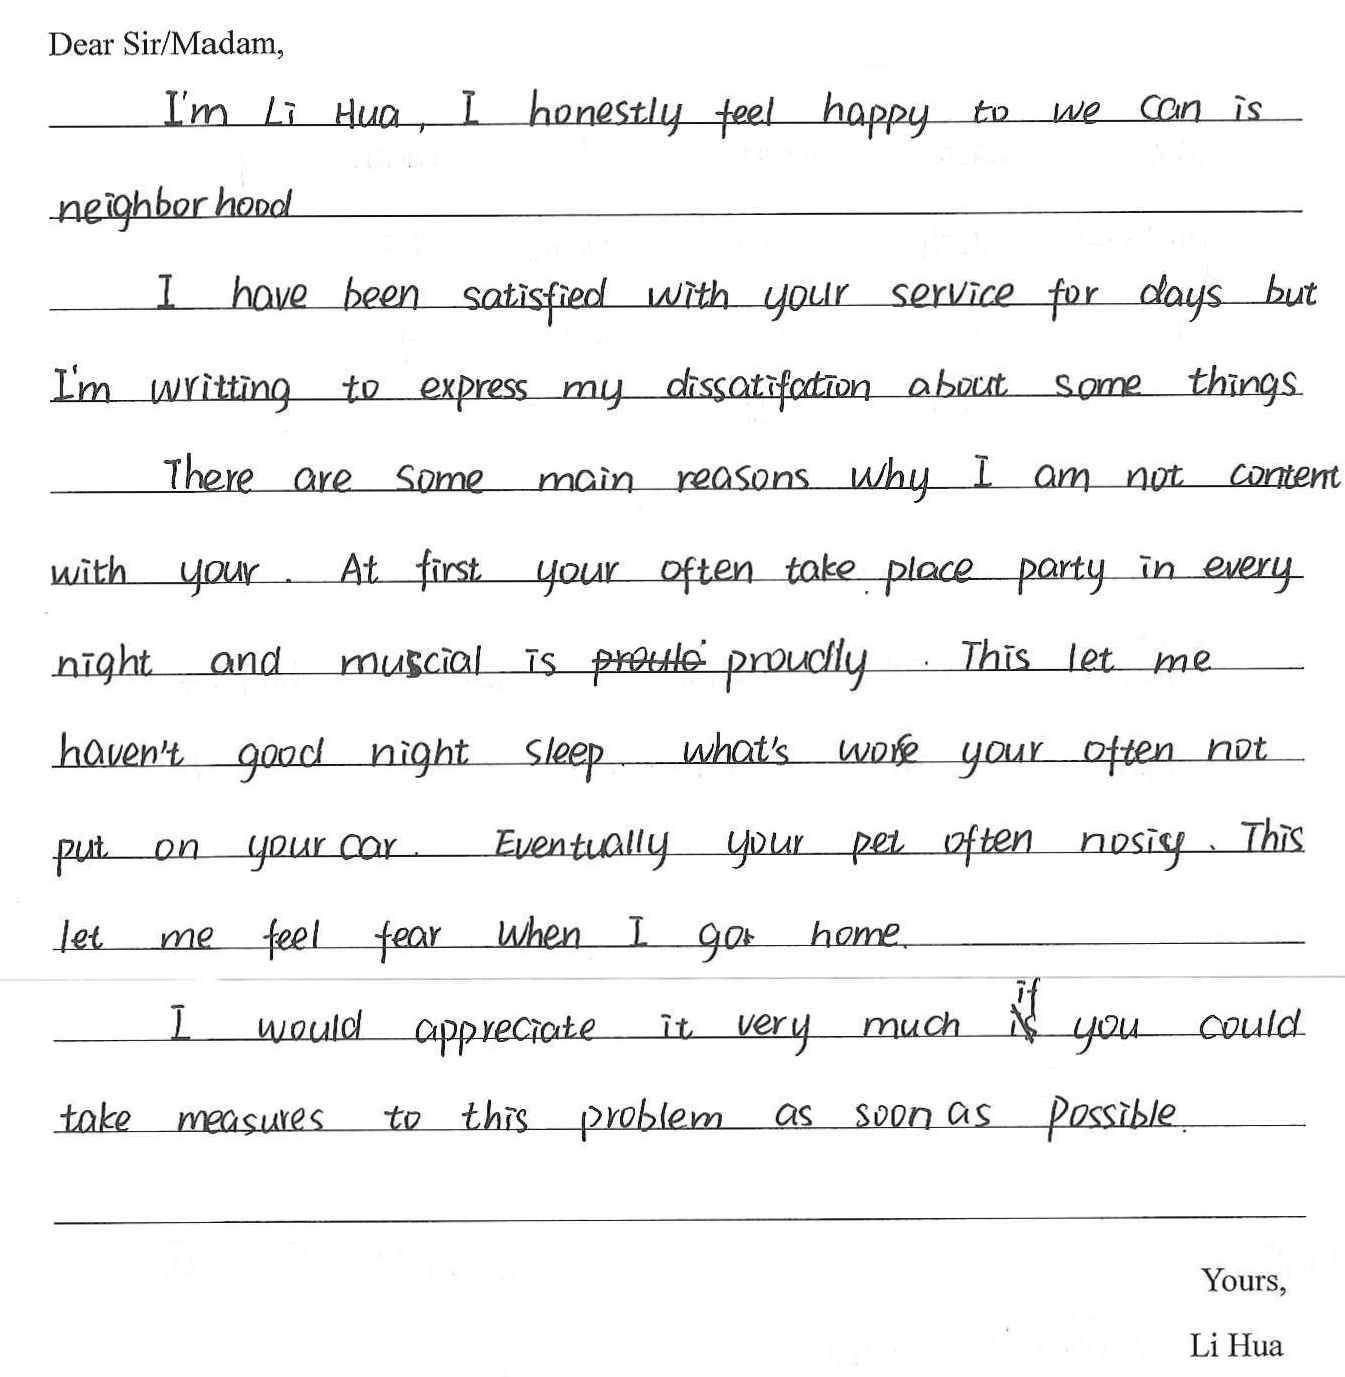 Dear Sir/Madam,
I'm Li Hua, I honestly feel happy to we can is
neighborhood
I have been satisfied with your service for days but
I'm writting to express my dissatifation about some things
There are some main reasons why I am not content
with your. At first your often take place party in every
night and muscial is proudly. This let me
haven't good night sleep. what's worse your often not
put on your car. Eventually your pet often nosiy. This
let me feel fear when I got home.
I would appreciate it very much if you could
take measures to this problem as soon as possible.
Yours,
Li Hua